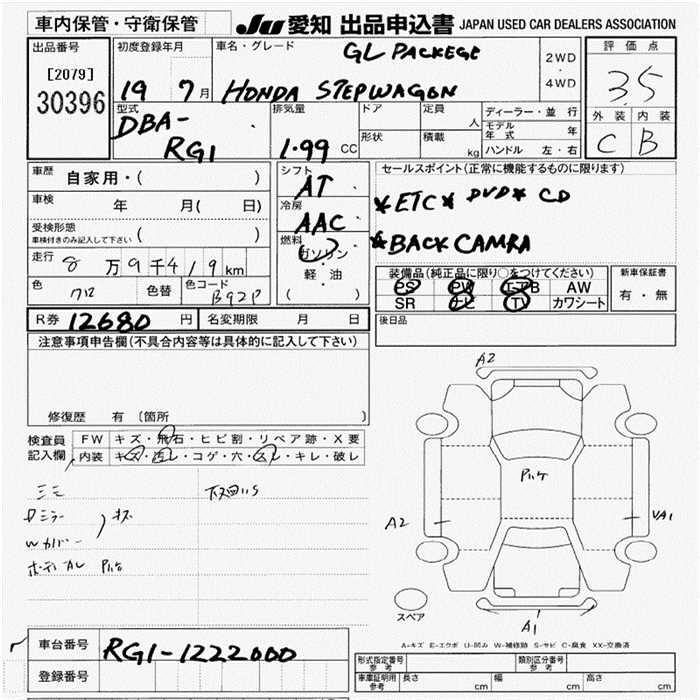 車内保管・守衛保管
JU 愛知 出品申込書 JAPAN USED CAR DEALERS ASSOCIATION
出品番号
[2079]
30396
初度登録年月
19 7 月
車名・グレード
GL PACKEGE
HONDA STEPWAGON
2WD
・
4WD
評価点
3.5
外装 内装
C B
型式
DBA-
RG1
排気量
1.99 CC
ドア
定員
人
形状
積載
kg
ディーラー・並行
モデル年式 年
ハンドル 左・右
車歴
自家用・( )
車検
年 月( 日)
受検形態
車検付きのみ記入して下さい ( )
走行
8 万 9 千 4 1 9 km
色
色替
色コード
B92P
シフト
AT
冷房
AAC
燃料
ガソリン
・
軽・油
( )
セールスポイント(正常に機能するものに限ります)
*ETC * DVD * CD
*BACK CAMRA
装備品(純正品に限り○をつけてください)
PS PW エアB AW
SR ナビ TV カワシート
新車保証書
有・無
R券 12680 円
名変期限 月 日
後日品
注意事項申告欄(不具合内容等は具体的に記入して下さい)
修復歴 有 〔箇所
検査員
記入欄
FW キズ・飛石・ヒビ割・リペア跡・X要
内装 キズ・汚レ・コゲ・穴・スレ・キレ・破レ
A2
A2
A1
スペア
A-キズ E-エクボ U-凹み W-補修跡 S-サビ C-腐食 XX-交換済
車台番号
RG1-1222000
登録番号
形式指定番号
参考
類別区分番号
参考
車庫証明用
参考
長さ cm
幅 cm
高さ cm